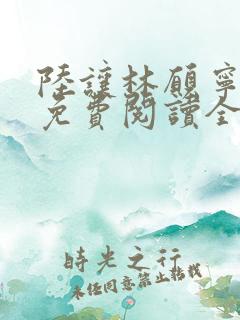 陸讓林願寧
免費閱讀全
時光之行
未經同意禁止轉載